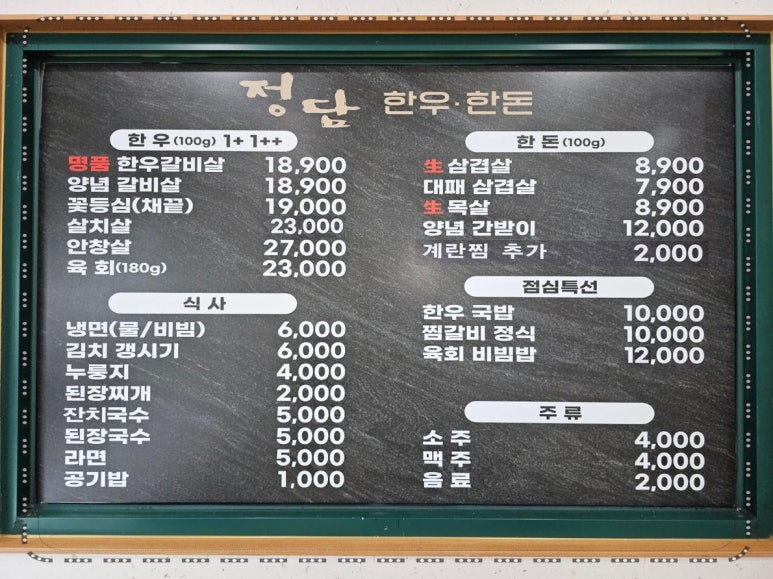 정담 한우·한돈
한 우(100g) 1+ 1++
명품 한우갈비살 18,900
양념 갈비살 18,900
꽃등심(채끝) 19,000
살치살 23,000
안창살 27,000
육 회(180g) 23,000
식 사
냉면(물/비빔) 6,000
김치 갱시기 6,000
누룽지 4,000
된장찌개 2,000
잔치국수 5,000
된장국수 5,000
라면 5,000
공기밥 1,000
한 돈(100g)
生 삼겹살 8,900
대패 삼겹살 7,900
生 목살 8,900
양념 간받이 12,000
계란찜 추가 2,000
점심특선
한우 국밥 10,000
찜갈비 정식 10,000
육회 비빔밥 12,000
주 류
소 주 4,000
맥 주 4,000
음 료 2,000